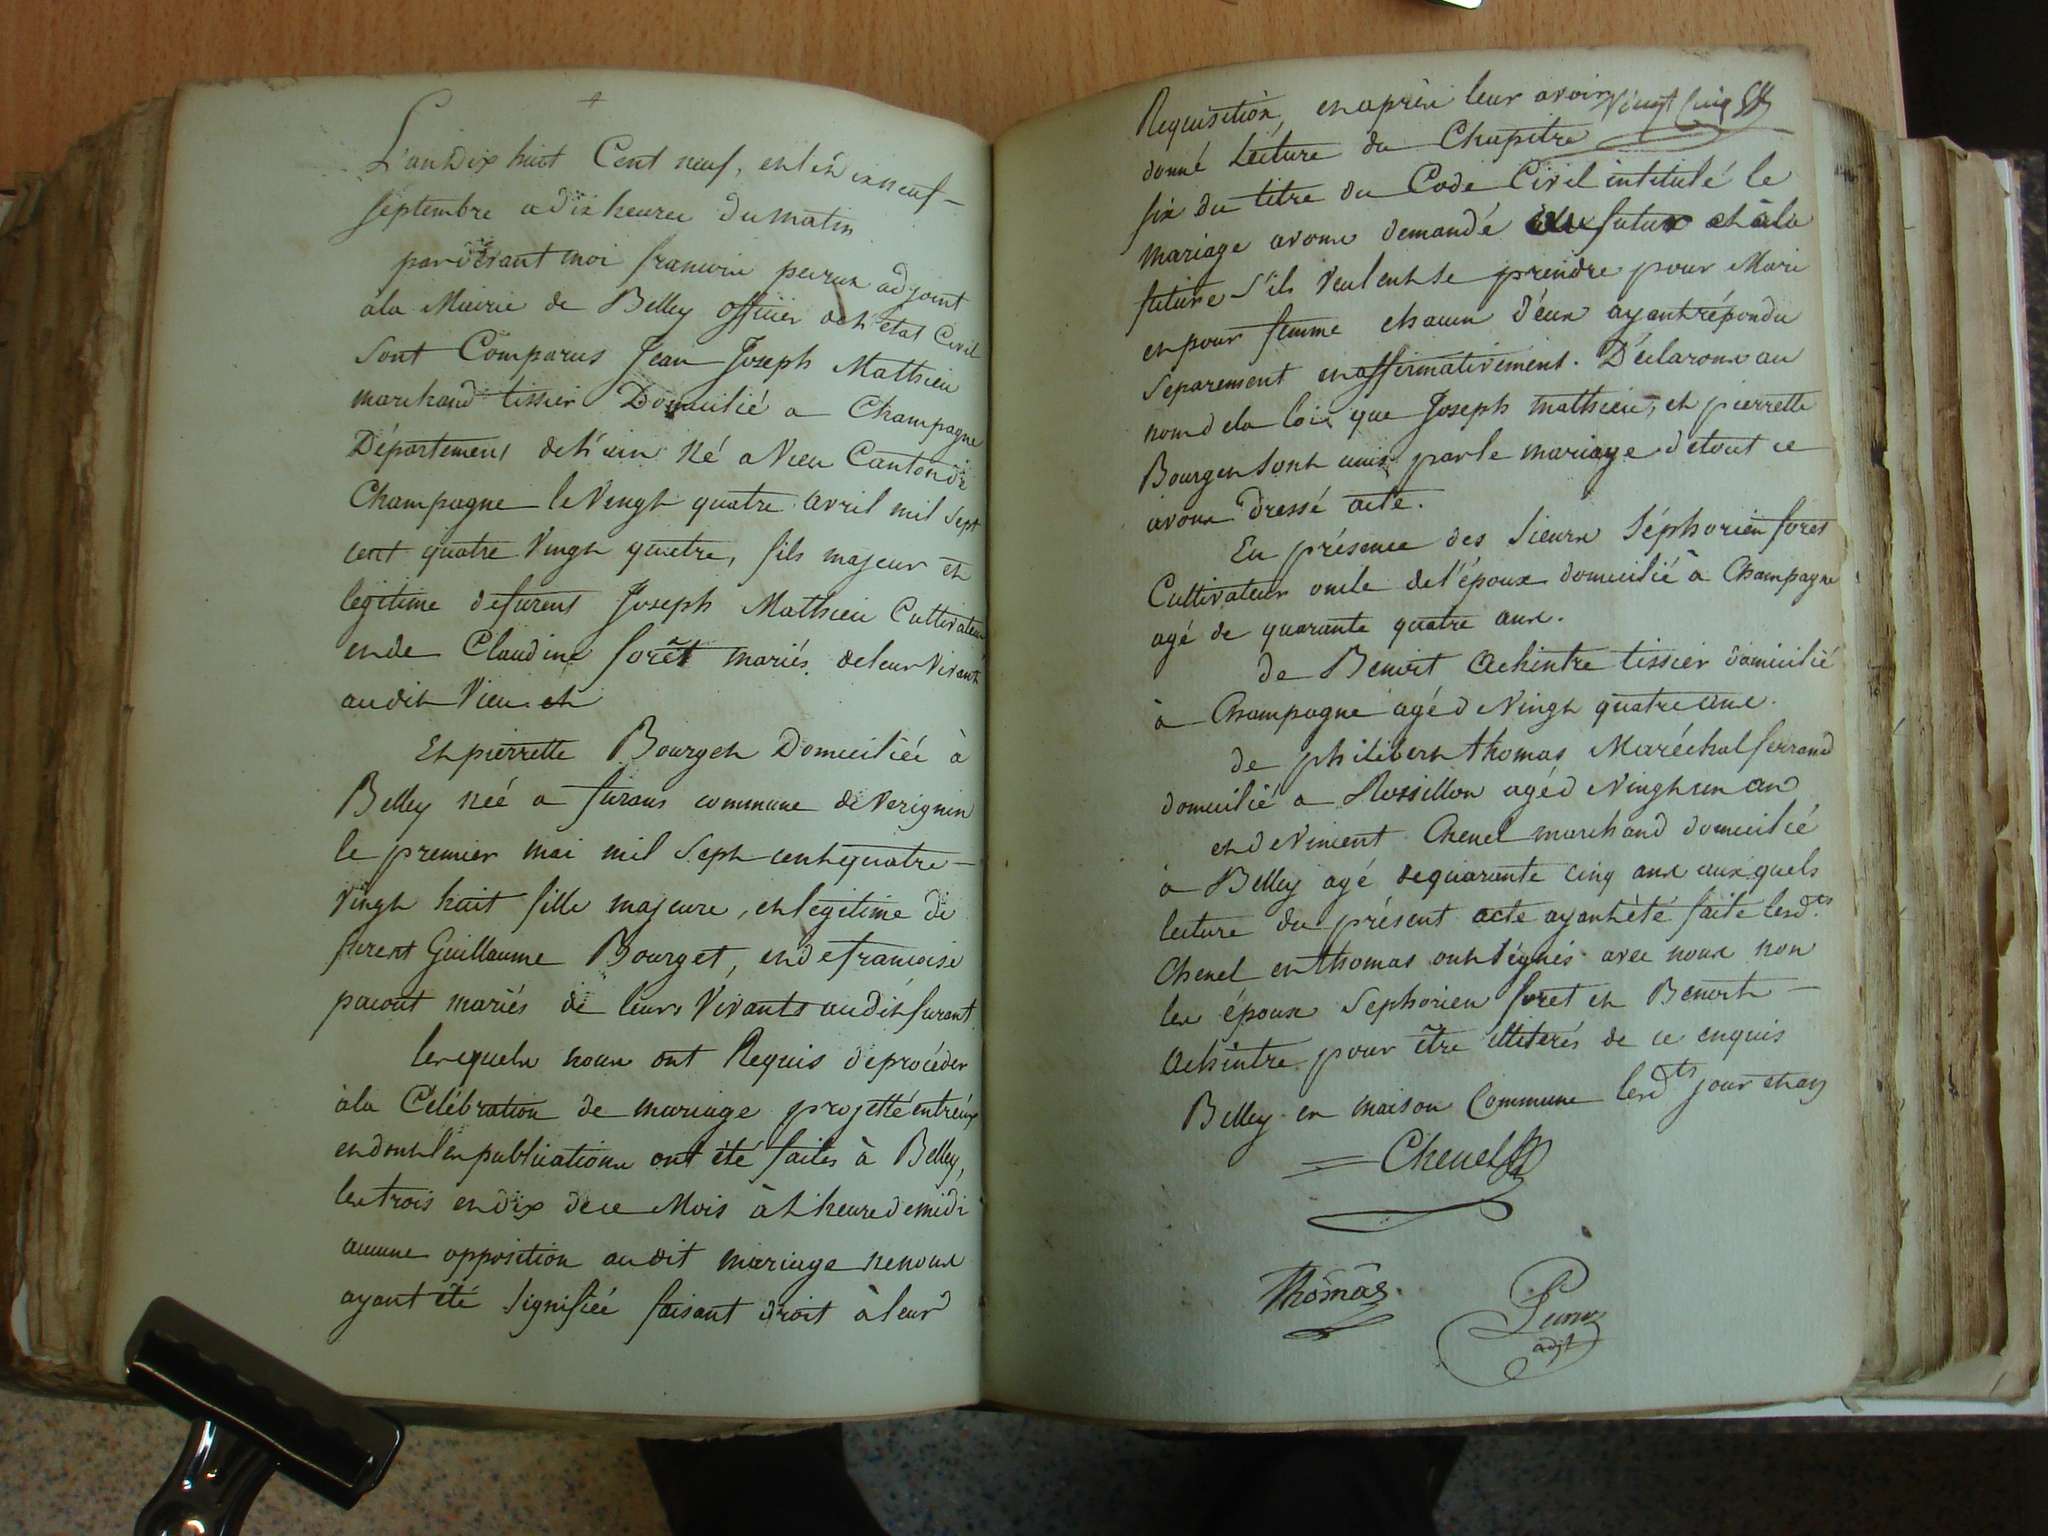 L'an Dix huit Cent neuf, et le Dix neuf
septembre a dix heures du matin
pardevant moi francois peyrux adjoint
à la Mairie de Belley officier de l'état Civil
sont Comparus Jean Joseph Mathieu
marchand tissier Domicilié a Champagne
Département de l'ain Né a Vieu Canton de
Champagne le Vingt quatre avril mil sept
cent quatre Vingt quatre, fils majeur et
legitime defurent Joseph Mathieu Cultivateur
et de Claudine forêt mariés de leur Vivant
au dit Vieu et
Et pierrette Bourget Domiciliée à
Belley née a furans commune de Verignin
le premier mai mil Sept cent quatre
Vingt huit fille majeure, et legitime de
furent Guillaume Bourget, et de francoise
pacout mariés de leurs Vivants au dit furant
lesquels nous ont Requis de procéder
à la Celébration de mariage projetté entr'eux
et dont les publications ont été faites à Belley,
les trois et dix de ce Mois à l'heure de midi
aucune opposition au dit mariage ne nous
ayant été signifiée faisant droit à leur
Vingt Cinq
Requisition, et après leur avoir
donné Lecture du Chapitre
six du titre du Code Civil intitulé le
mariage avons demandé au futur et à la
future S'ils Veulent se prendre pour Mari
et pour femme chacun d'eux ayant répondu
Separement et affirmativement. Déclarons au
nom de la loi que Joseph mathieu, et pierrette
Bourget sont unis par le mariage de tout ce
avons dressé acte.
En présence des Sieurs Séphorien foret
Cultivateur oncle de l'époux domicilié à Champagne
agé de quarante quatre ans.
de Benoit Achintre tissier domicilié
à Champagne agé de Vingt quatre ans.
de philibert thomas Maréchal ferrand
domicilié a Rossillon agé de Vingt un an
et de Vincent Chenel marchand domicilié
à Belley agé de quarante cinq ans auxquels
lecture du présent acte ayant été faite lesd.ts
Chenel et thomas ont signés avec nous non
les époux Sephorien foret et Benoit
Achintre pour être illiterés de ce enquis
Belley en maison Commune lesd.ts jour et an
Chenel
Thomas
adjt